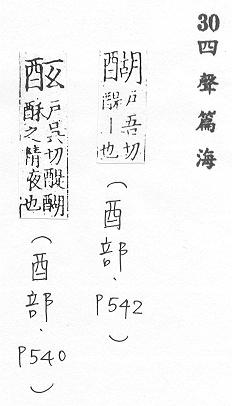 30四聲篇海
醐戶吾切醍｜也
(酉部.P542)
戶吳切醍醐酥之精液也
(酉部.P540)